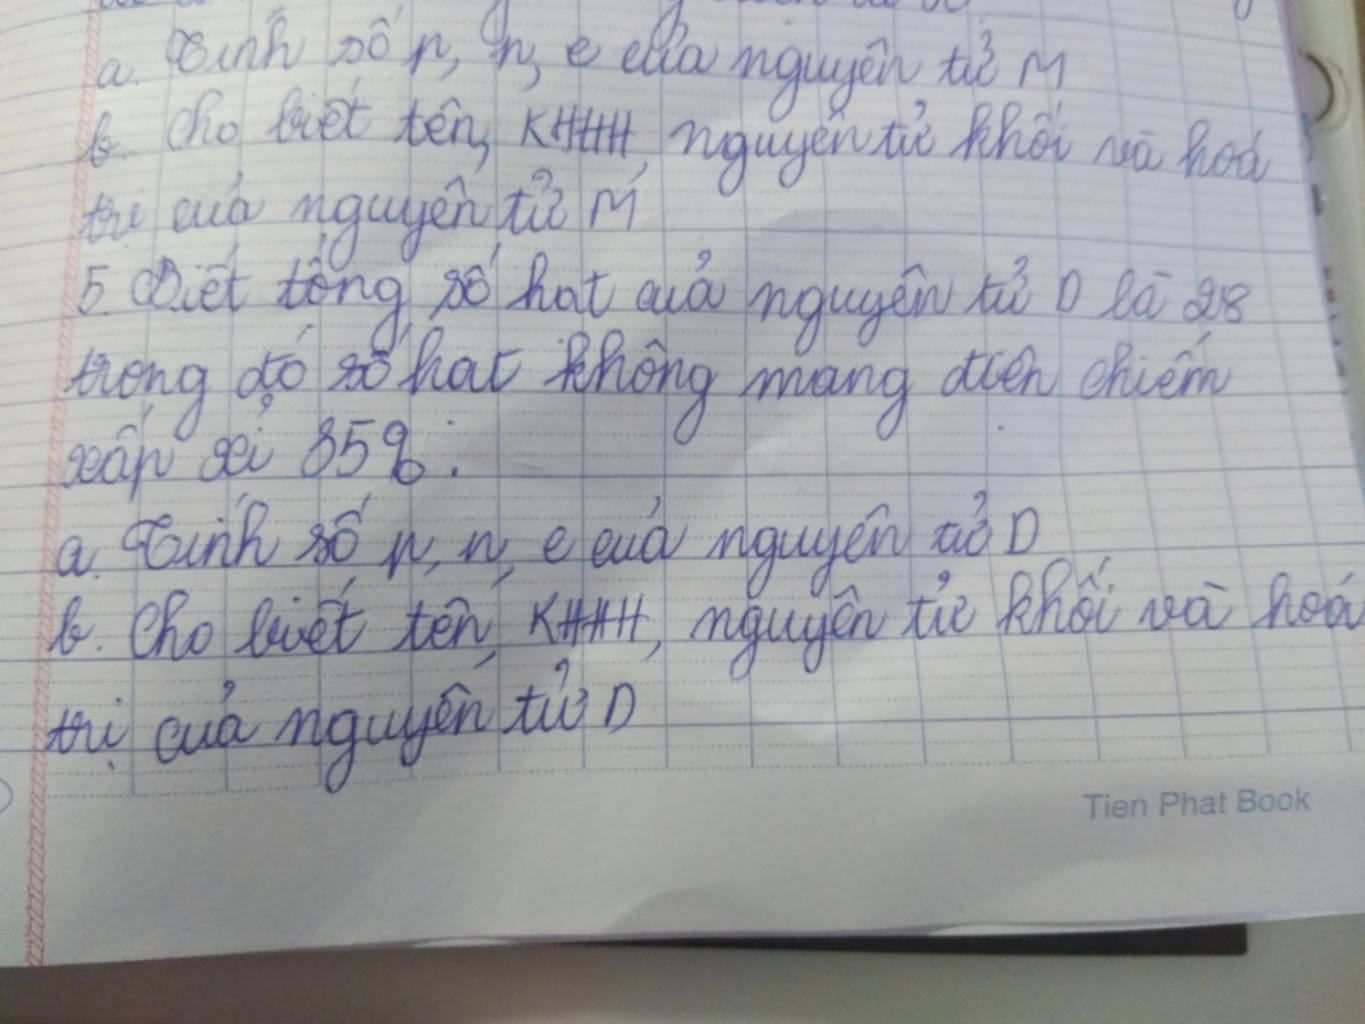 a. Tính số p, n, e của nguyên tử M
b. Cho biết tên, KHHH, nguyên tử khối và hoá
trị của nguyên tử M
5. Biết tổng số hat của nguyên tử D là 28
trong đó số hat không mang điên chiếm
xấp xỉ 35%.
a. Tính số p, n, e của nguyên tử D
b. Cho biết tên, KHHH, nguyên tử khối và hoá
trị của nguyên tử D
Tien Phat Book